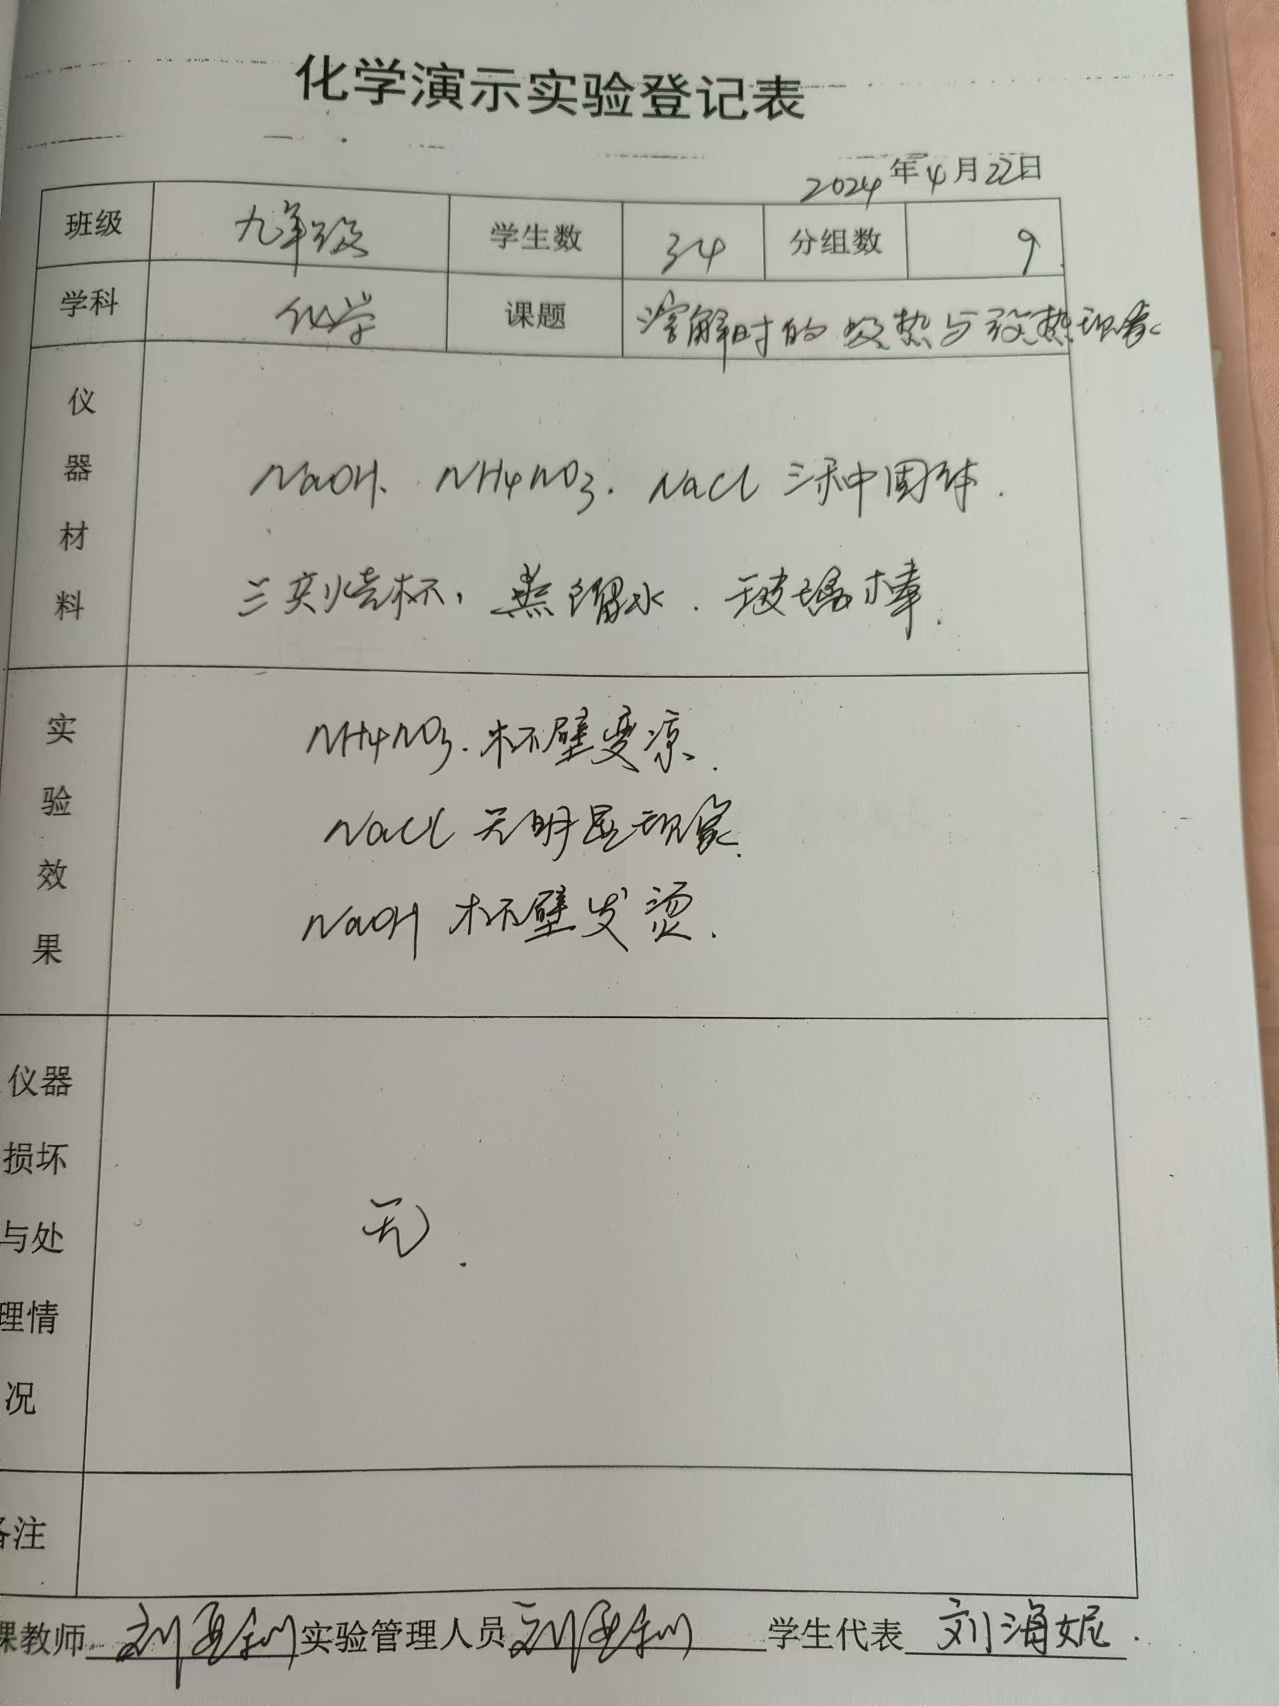 化学演示实验登记表
2024年4月22日
班级 九年级 学生数 34 分组数 9
学科 化学 课题 溶解时的吸热与放热现象
仪器材料
NaOH、NH4NO3、NaCl 三种固体.
三只烧杯, 蒸馏水、玻璃棒.
实验效果
NH4NO3. 杯壁变凉.
NaCl 无明显现象.
NaOH 杯壁发烫.
仪器损坏与处理情况
无.
备注
课教师 刘 实验管理人员 刘 学生代表 刘海妮.